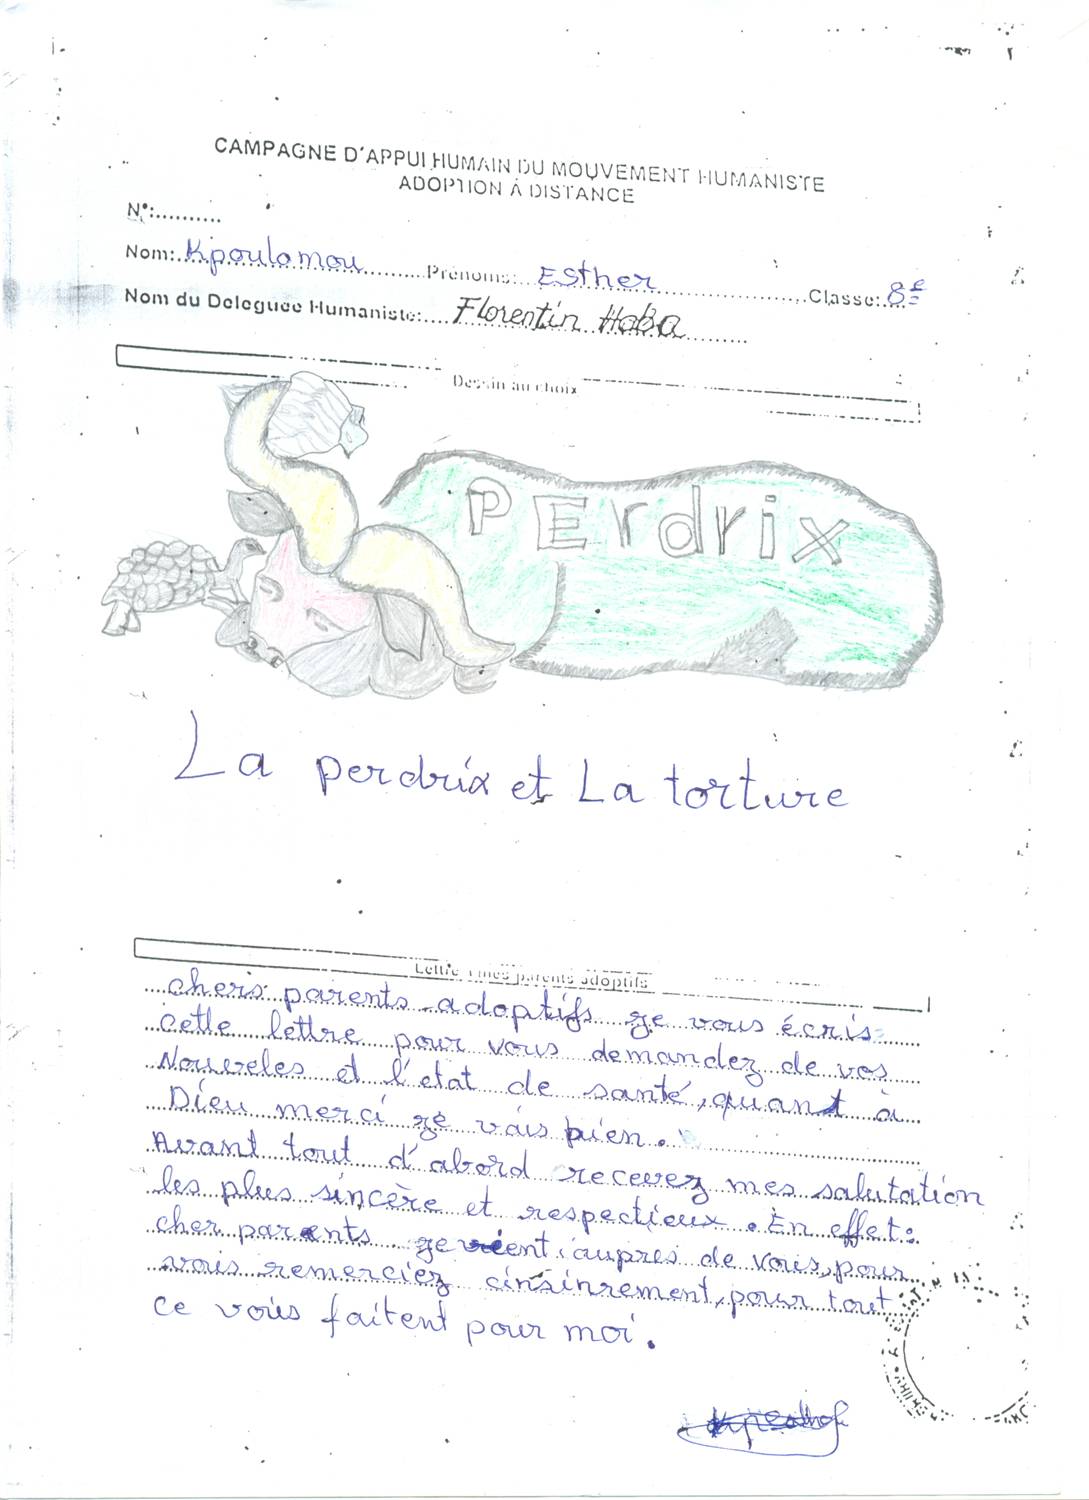 CAMPAGNE D'APPUI HUMAIN DU MOUVEMENT HUMANISTE
ADOPTION À DISTANCE
N°:..........
Nom: Kpoulomou Prénoms: Esther Classe: 8e
Nom du Deleguee Humaniste: Florentin Haba
Dessin au choix
PErdrix
La perdrix et La torture
Lettre à mes parents adoptifs
chers parents adoptifs ge vous écris
cette lettre pour vous demandez de vos
Nouveles et l'etat de santé, quant à
Dieu merci ge vais bien.
Avant tout d'abord recevez mes salutation
les plus sincère et respectieux. En effet:
cher parents ge vient auprès de vous, pour
vous remerciez cinsinrement, pour tout
ce vous faitent pour moi.